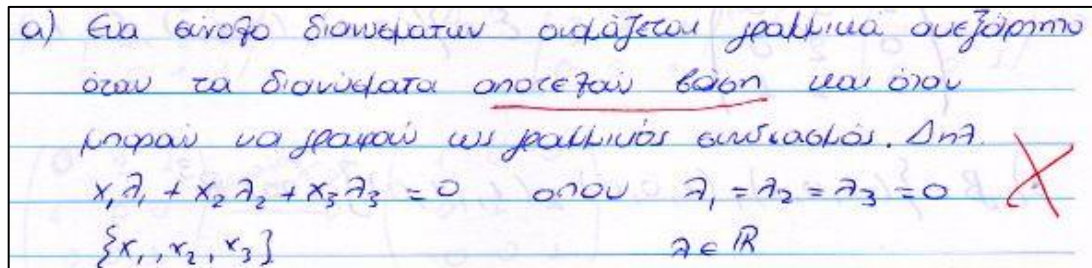 α) Ένα σύνολο διανυσμάτων ονομάζεται γραμμικά ανεξάρτητο
όταν τα διανύσματα αποτελούν βάση και όταν
μπορούν να γραφούν ως γραμμικός συνδυασμός. Δηλ.
x₁λ₁ + x₂λ₂ + x₃λ₃ = 0 όπου λ₁ = λ₂ = λ₃ = 0
{x₁, x₂, x₃} λ ∈ ℝ